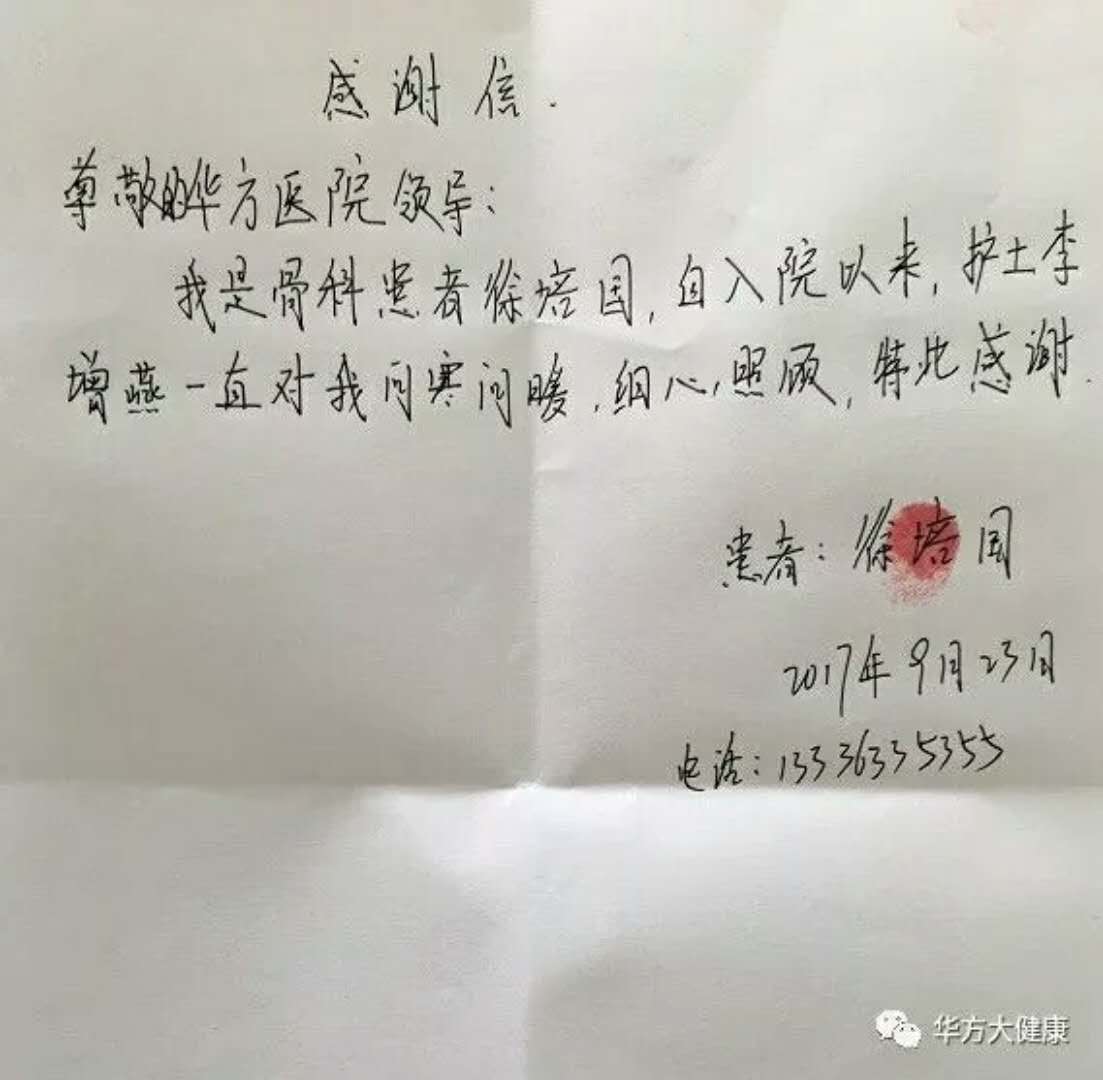 感谢信.
尊敬的华方医院领导:
我是骨科患者徐培国,自入院以来,护士李
增燕一直对我问寒问暖,细心照顾,特此感谢.
患者:徐培国
2017年9月23日
电话:13336335355
华方大健康